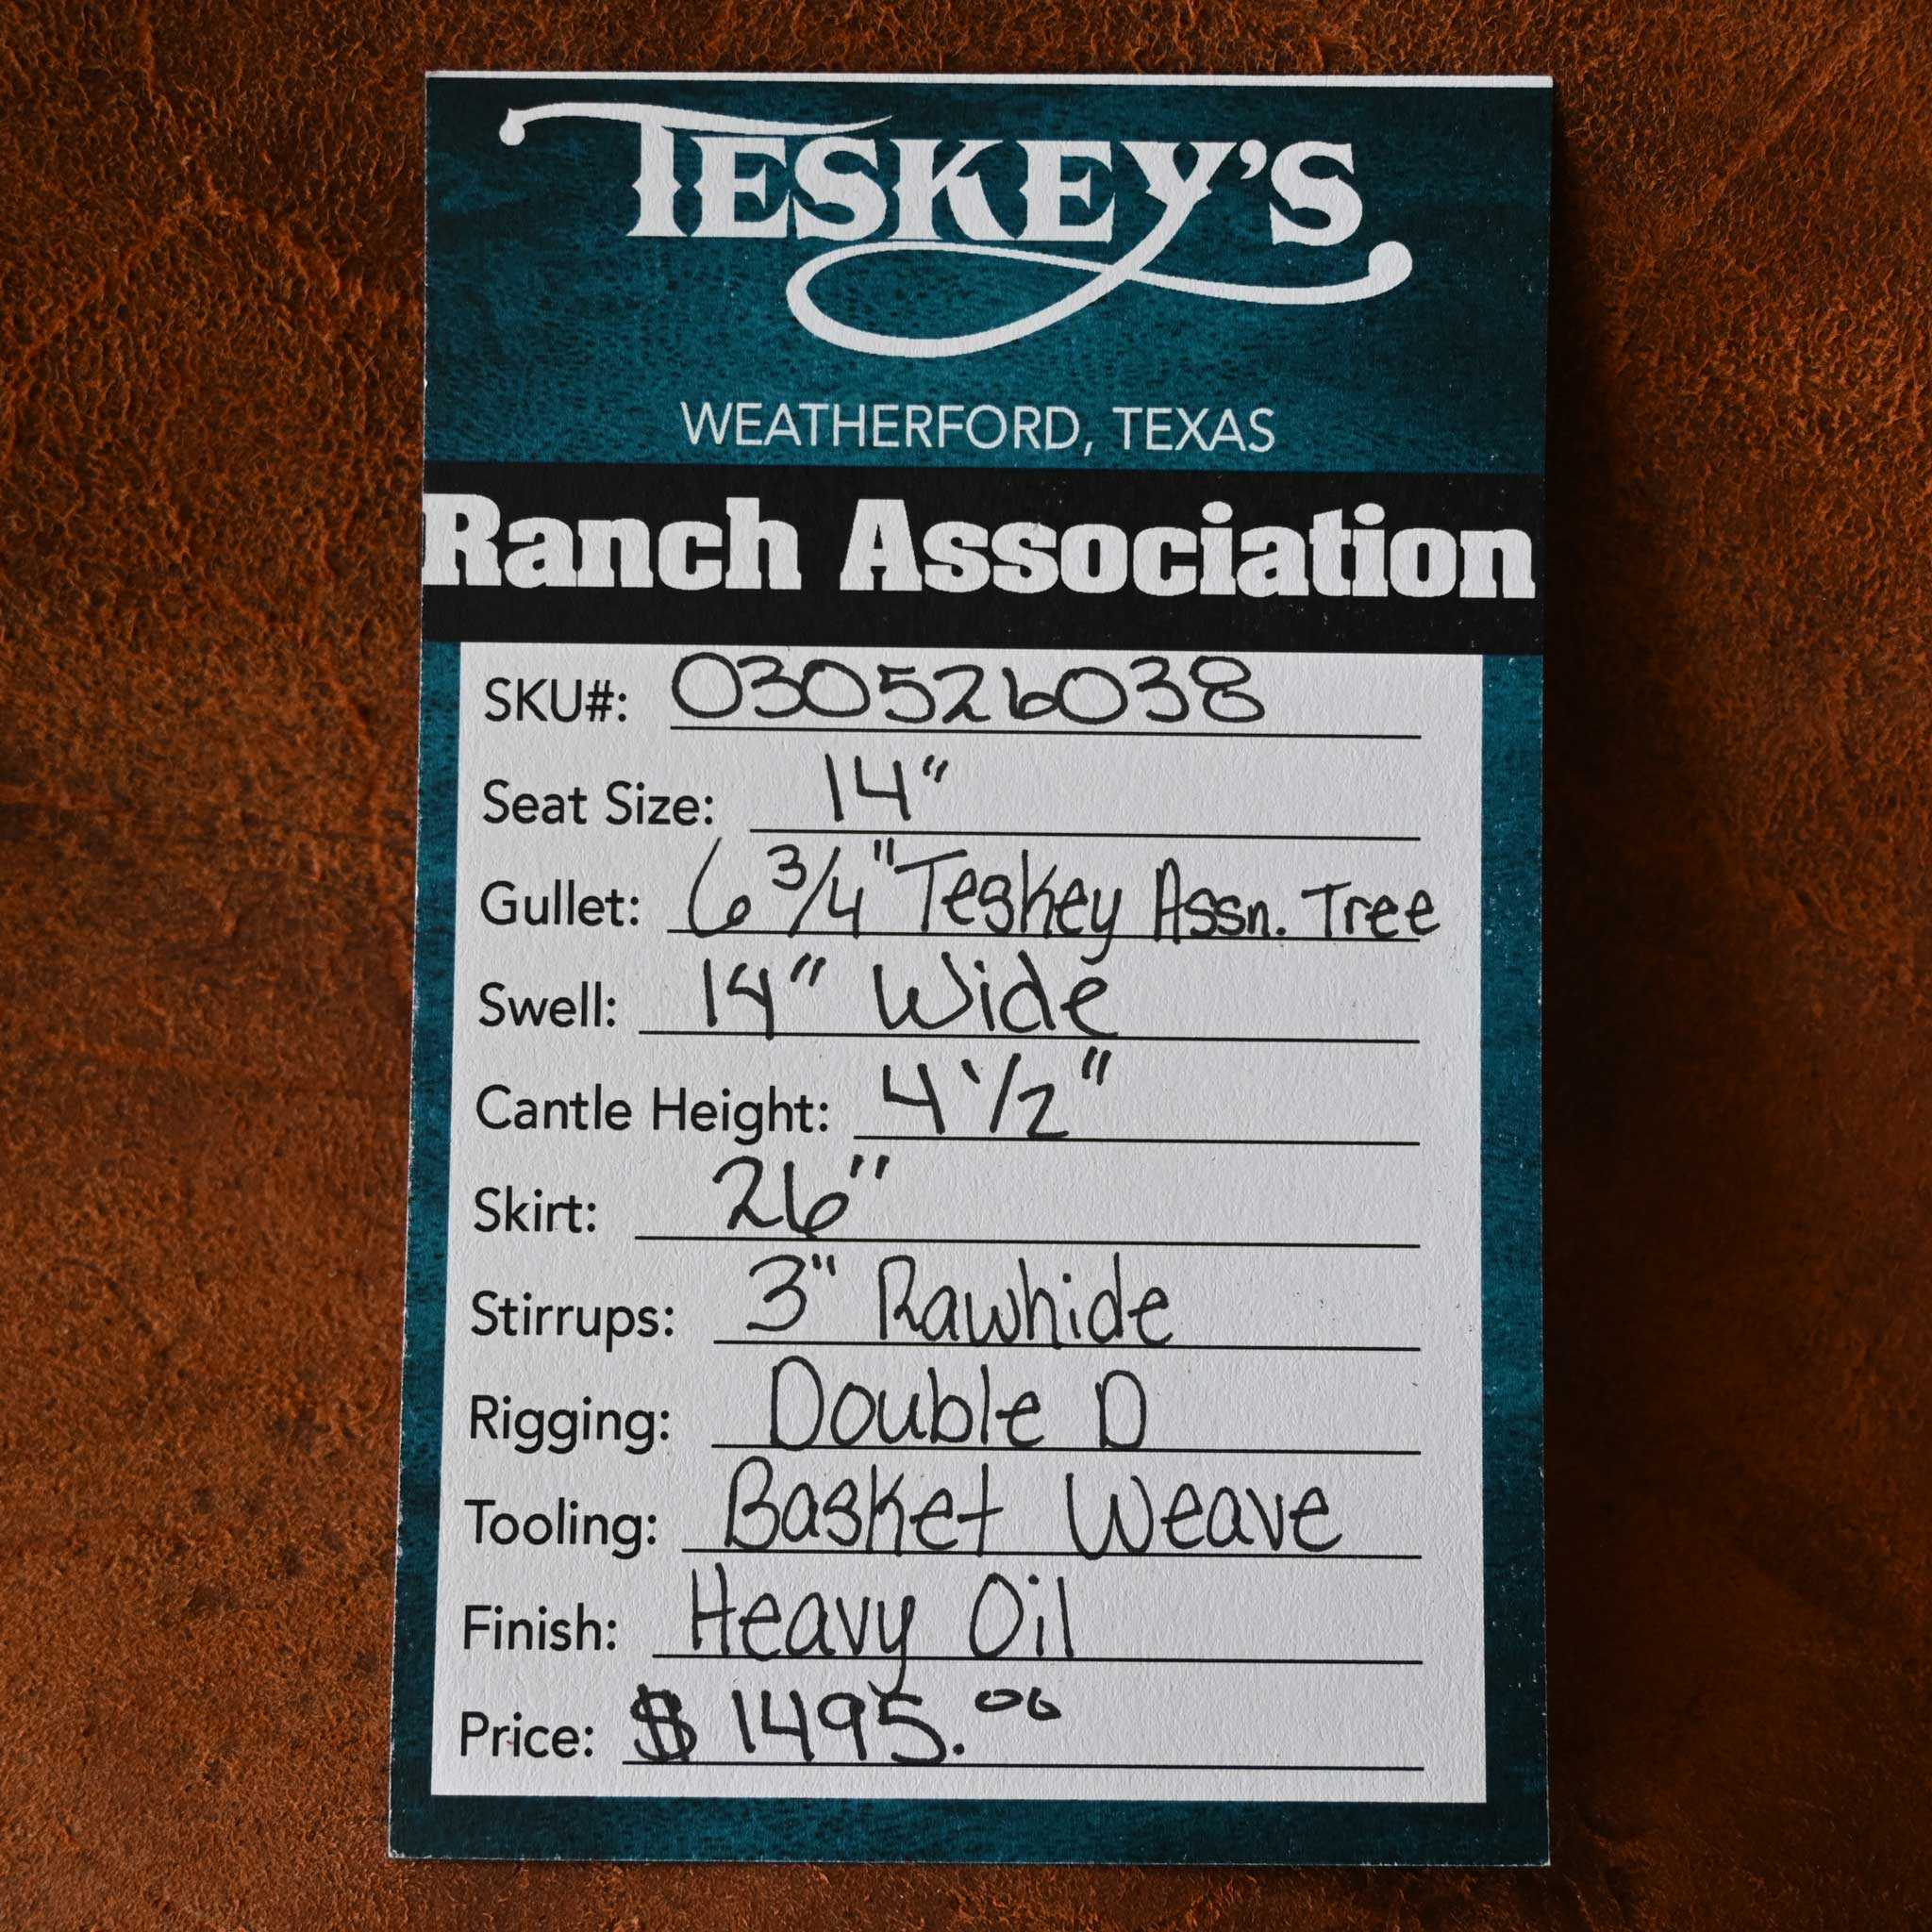 TESKEY'S
WEATHERFORD, TEXAS
Ranch Association
SKU#: 030526038
Seat Size: 14"
Gullet: 6 3/4" Teskey Assn. Tree
Swell: 14" Wide
Cantle Height: 4 1/2"
Skirt: 26"
Stirrups: 3" Rawhide
Rigging: Double D
Tooling: Basket Weave
Finish: Heavy Oil
Price: $1495.00